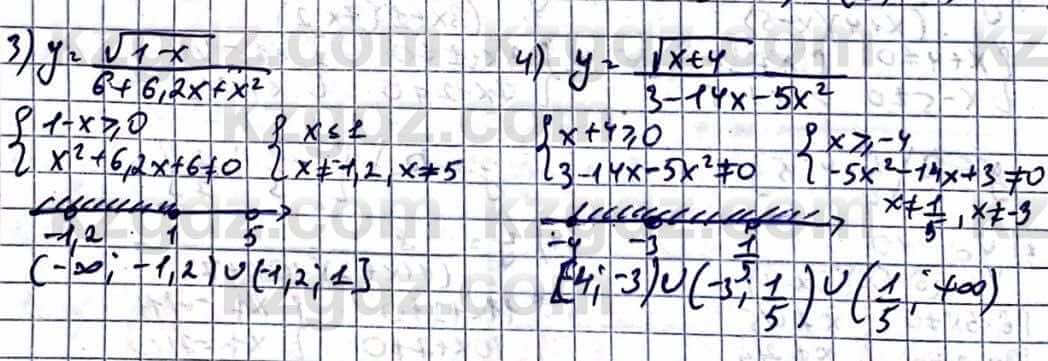 3) y = √(1-x) / (6+6,2x+x²)
{ 1-x ≥ 0
{ x²+6,2x+6 ≠ 0
{ x ≤ 1
{ x ≠ -1,2, x ≠ 5
-1,2 1 5
(-∞; -1,2) ∪ (-1,2; 1]
4) y = √(x+4) / (3-14x-5x²)
{ x+4 ≥ 0
{ 3-14x-5x² ≠ 0
{ x ≥ -4
{ -5x²-14x+3 ≠ 0
x ≠ 1/5, x ≠ -3
-4 -3 1/5
[4; -3) ∪ (-3; 1/5) ∪ (1/5; +∞)
kzgdz.com